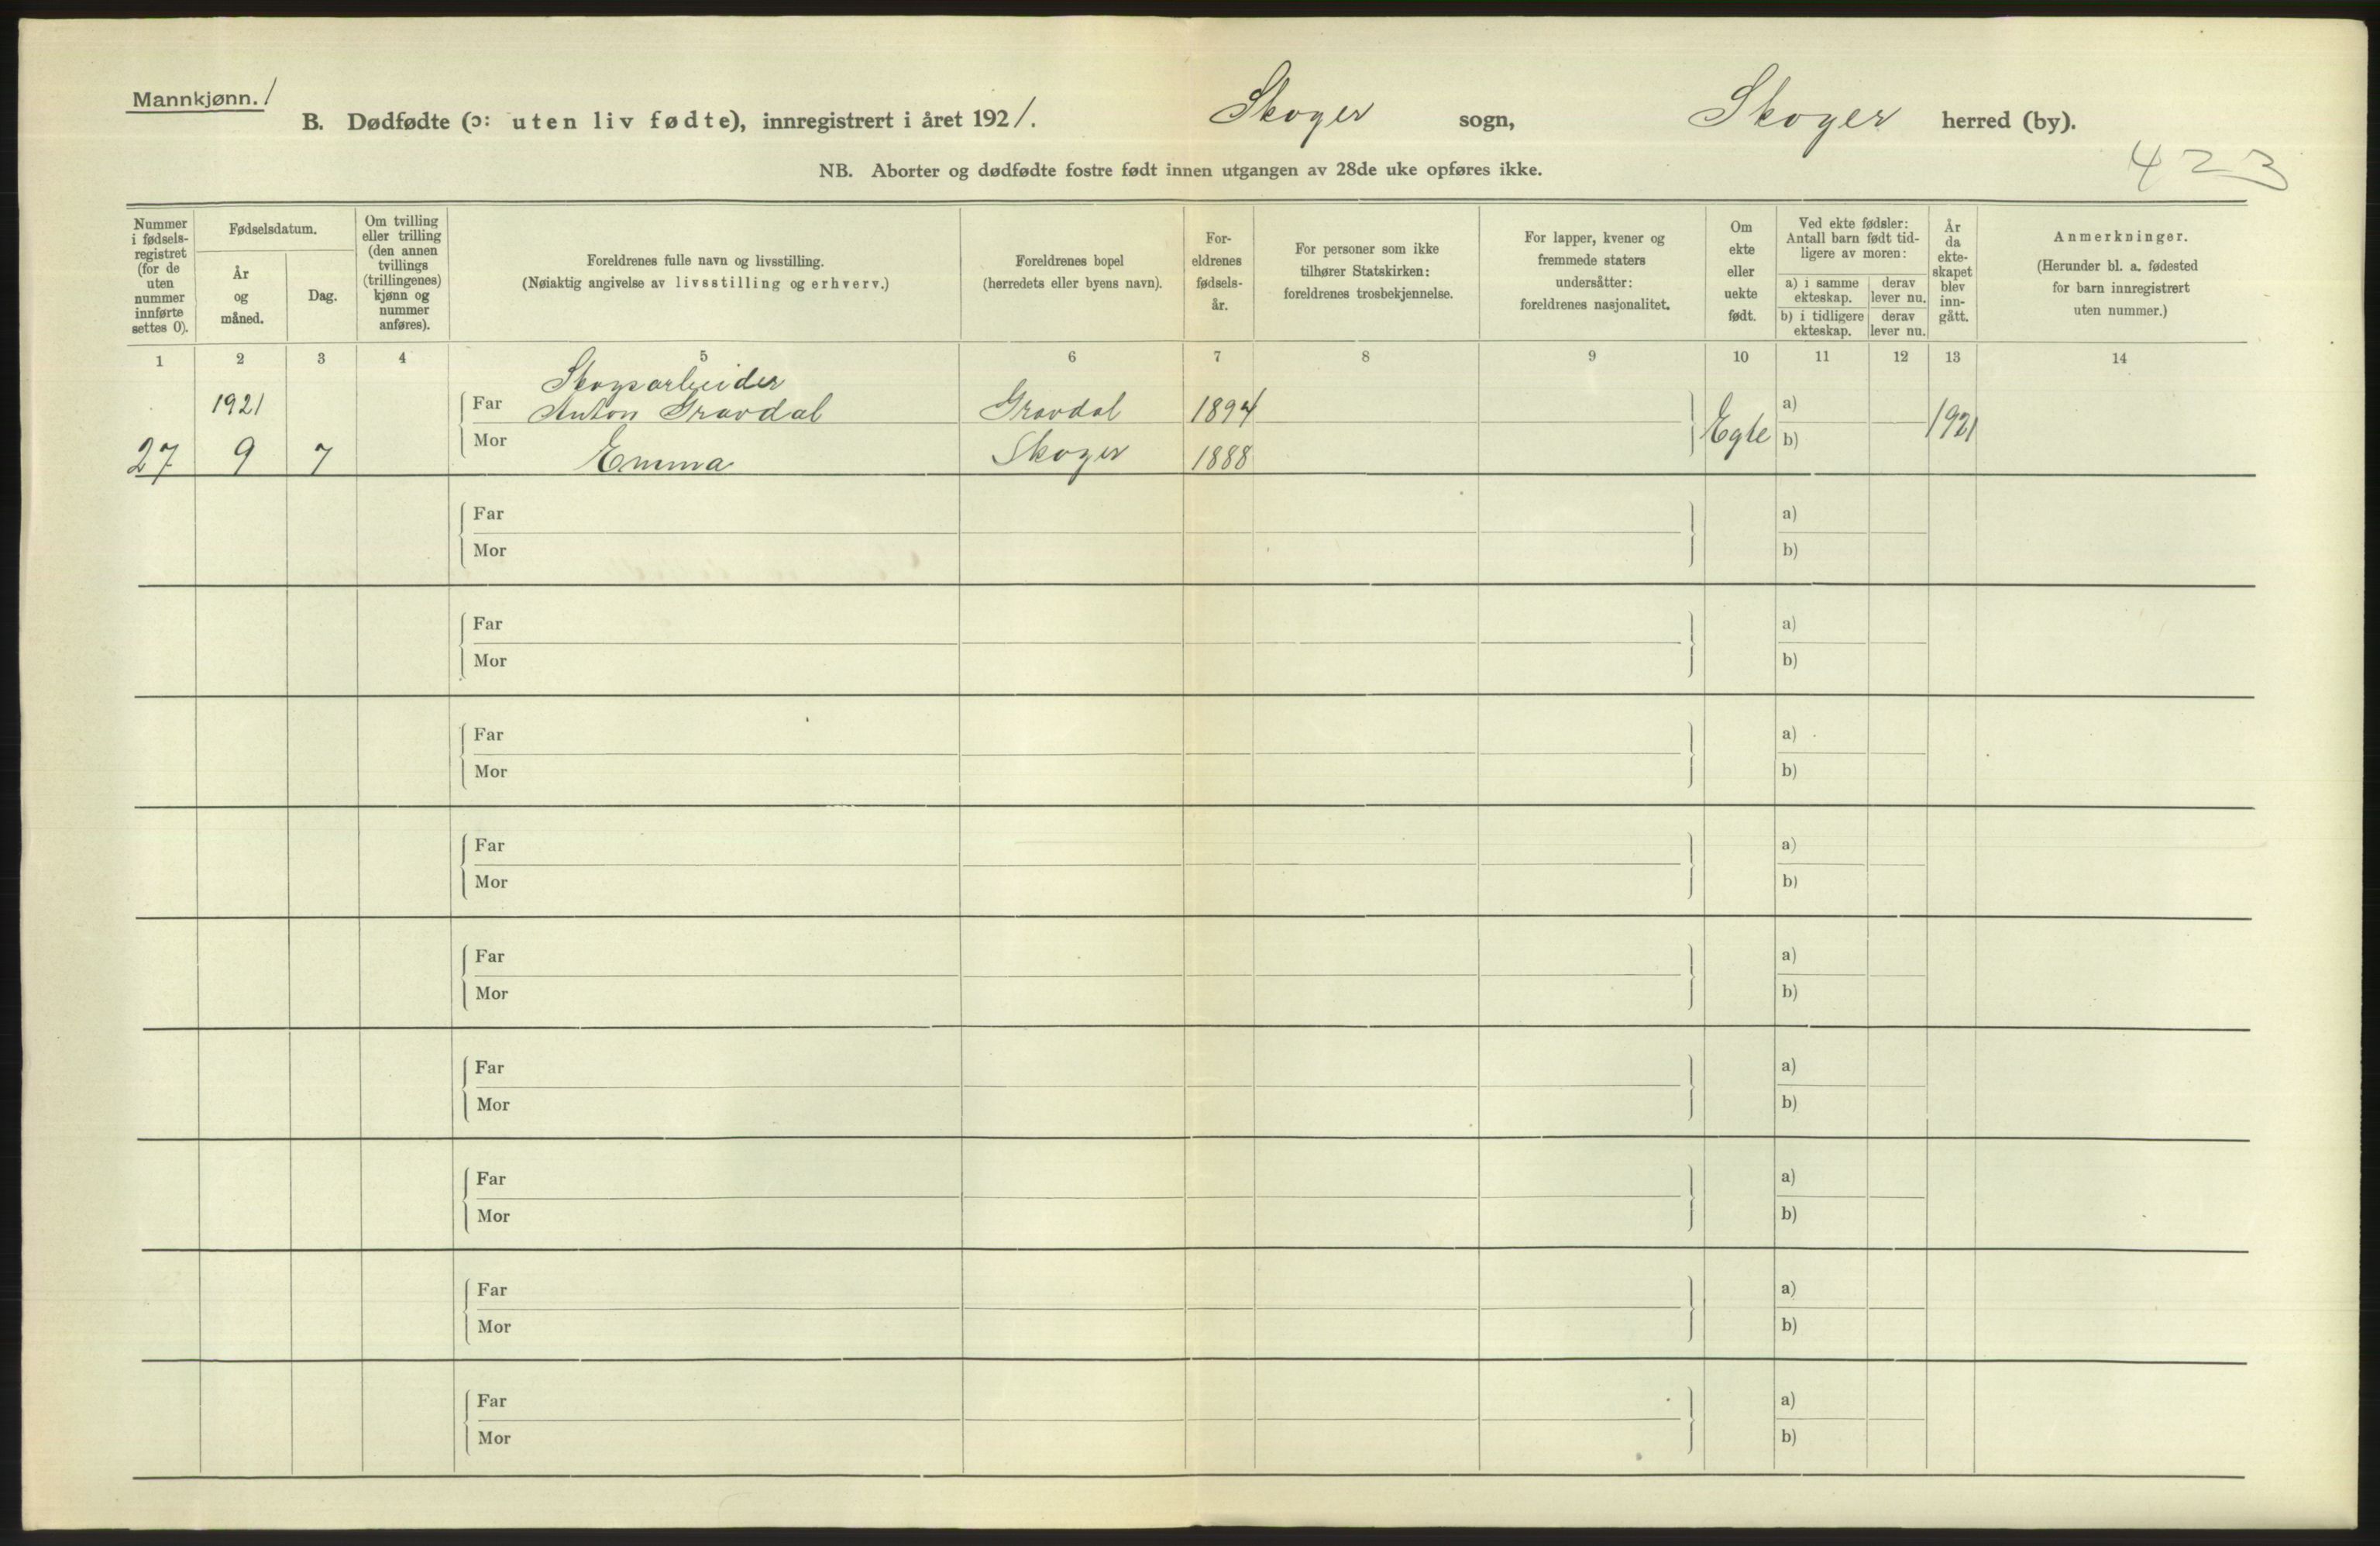 Mannkjønn. 1
B. Dødfødte (ɔ: uten liv fødte), innregistrert i året 1921. Skoger sogn, Skoger herred (by).
423
NB. Aborter og dødfødte fostre født innen utgangen av 28de uke opføres ikke.
Nummer
i fødsels-
registret
(for de
uten
nummer
innførte
settes 0).
Fødselsdatum.
År
og
måned.
Dag.
Om tvilling
eller trilling
(den annen
tvillings
(trillingenes)
kjønn og
nummer
anføres).
Foreldrenes fulle navn og livsstilling.
(Nøiaktig angivelse av livsstilling og erhverv.)
Foreldrenes bopel
(herredets eller byens navn).
For-
eldrenes
fødsels-
år.
For personer som ikke
tilhører Statskirken:
foreldrenes trosbekjennelse.
For lapper, kvener og
fremmede staters
undersåtter:
foreldrenes nasjonalitet.
Om
ekte
eller
uekte
født.
Ved ekte fødsler:
Antall barn født tid-
ligere av moren:
a) i samme
ekteskap.
derav
lever nu.
b) i tidligere
ekteskap.
derav
lever nu.
År
da
ekte-
skapet
blev
inn-
gått.
Anmerkninger.
(Herunder bl. a. fødested
for barn innregistrert
uten nummer.)
1 2 3 4 5 6 7 8 9 10 11 12 13 14
Skogsarbeider
1921 Far Anton Gravdal Gravdal 1894 a)
27 9 7 Mor Emma Skoger 1888 Egte b) 1921
Far a)
Mor b)
Far a)
Mor b)
Far a)
Mor b)
Far a)
Mor b)
Far a)
Mor b)
Far a)
Mor b)
Far a)
Mor b)
Far a)
Mor b)
Far a)
Mor b)